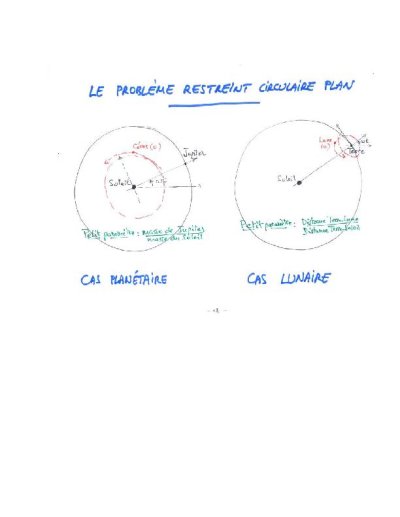 LE PROBLÈME RESTREINT CIRCULAIRE PLAN
Cérès (0)
Jupiter
Soleil
Lune
(0)
Terre
Soleil
Petit paramètre : masse de Jupiter
masse du Soleil
Petit paramètre : Distance Terre Lune
Distance Terre Soleil
CAS PLANÉTAIRE
CAS LUNAIRE